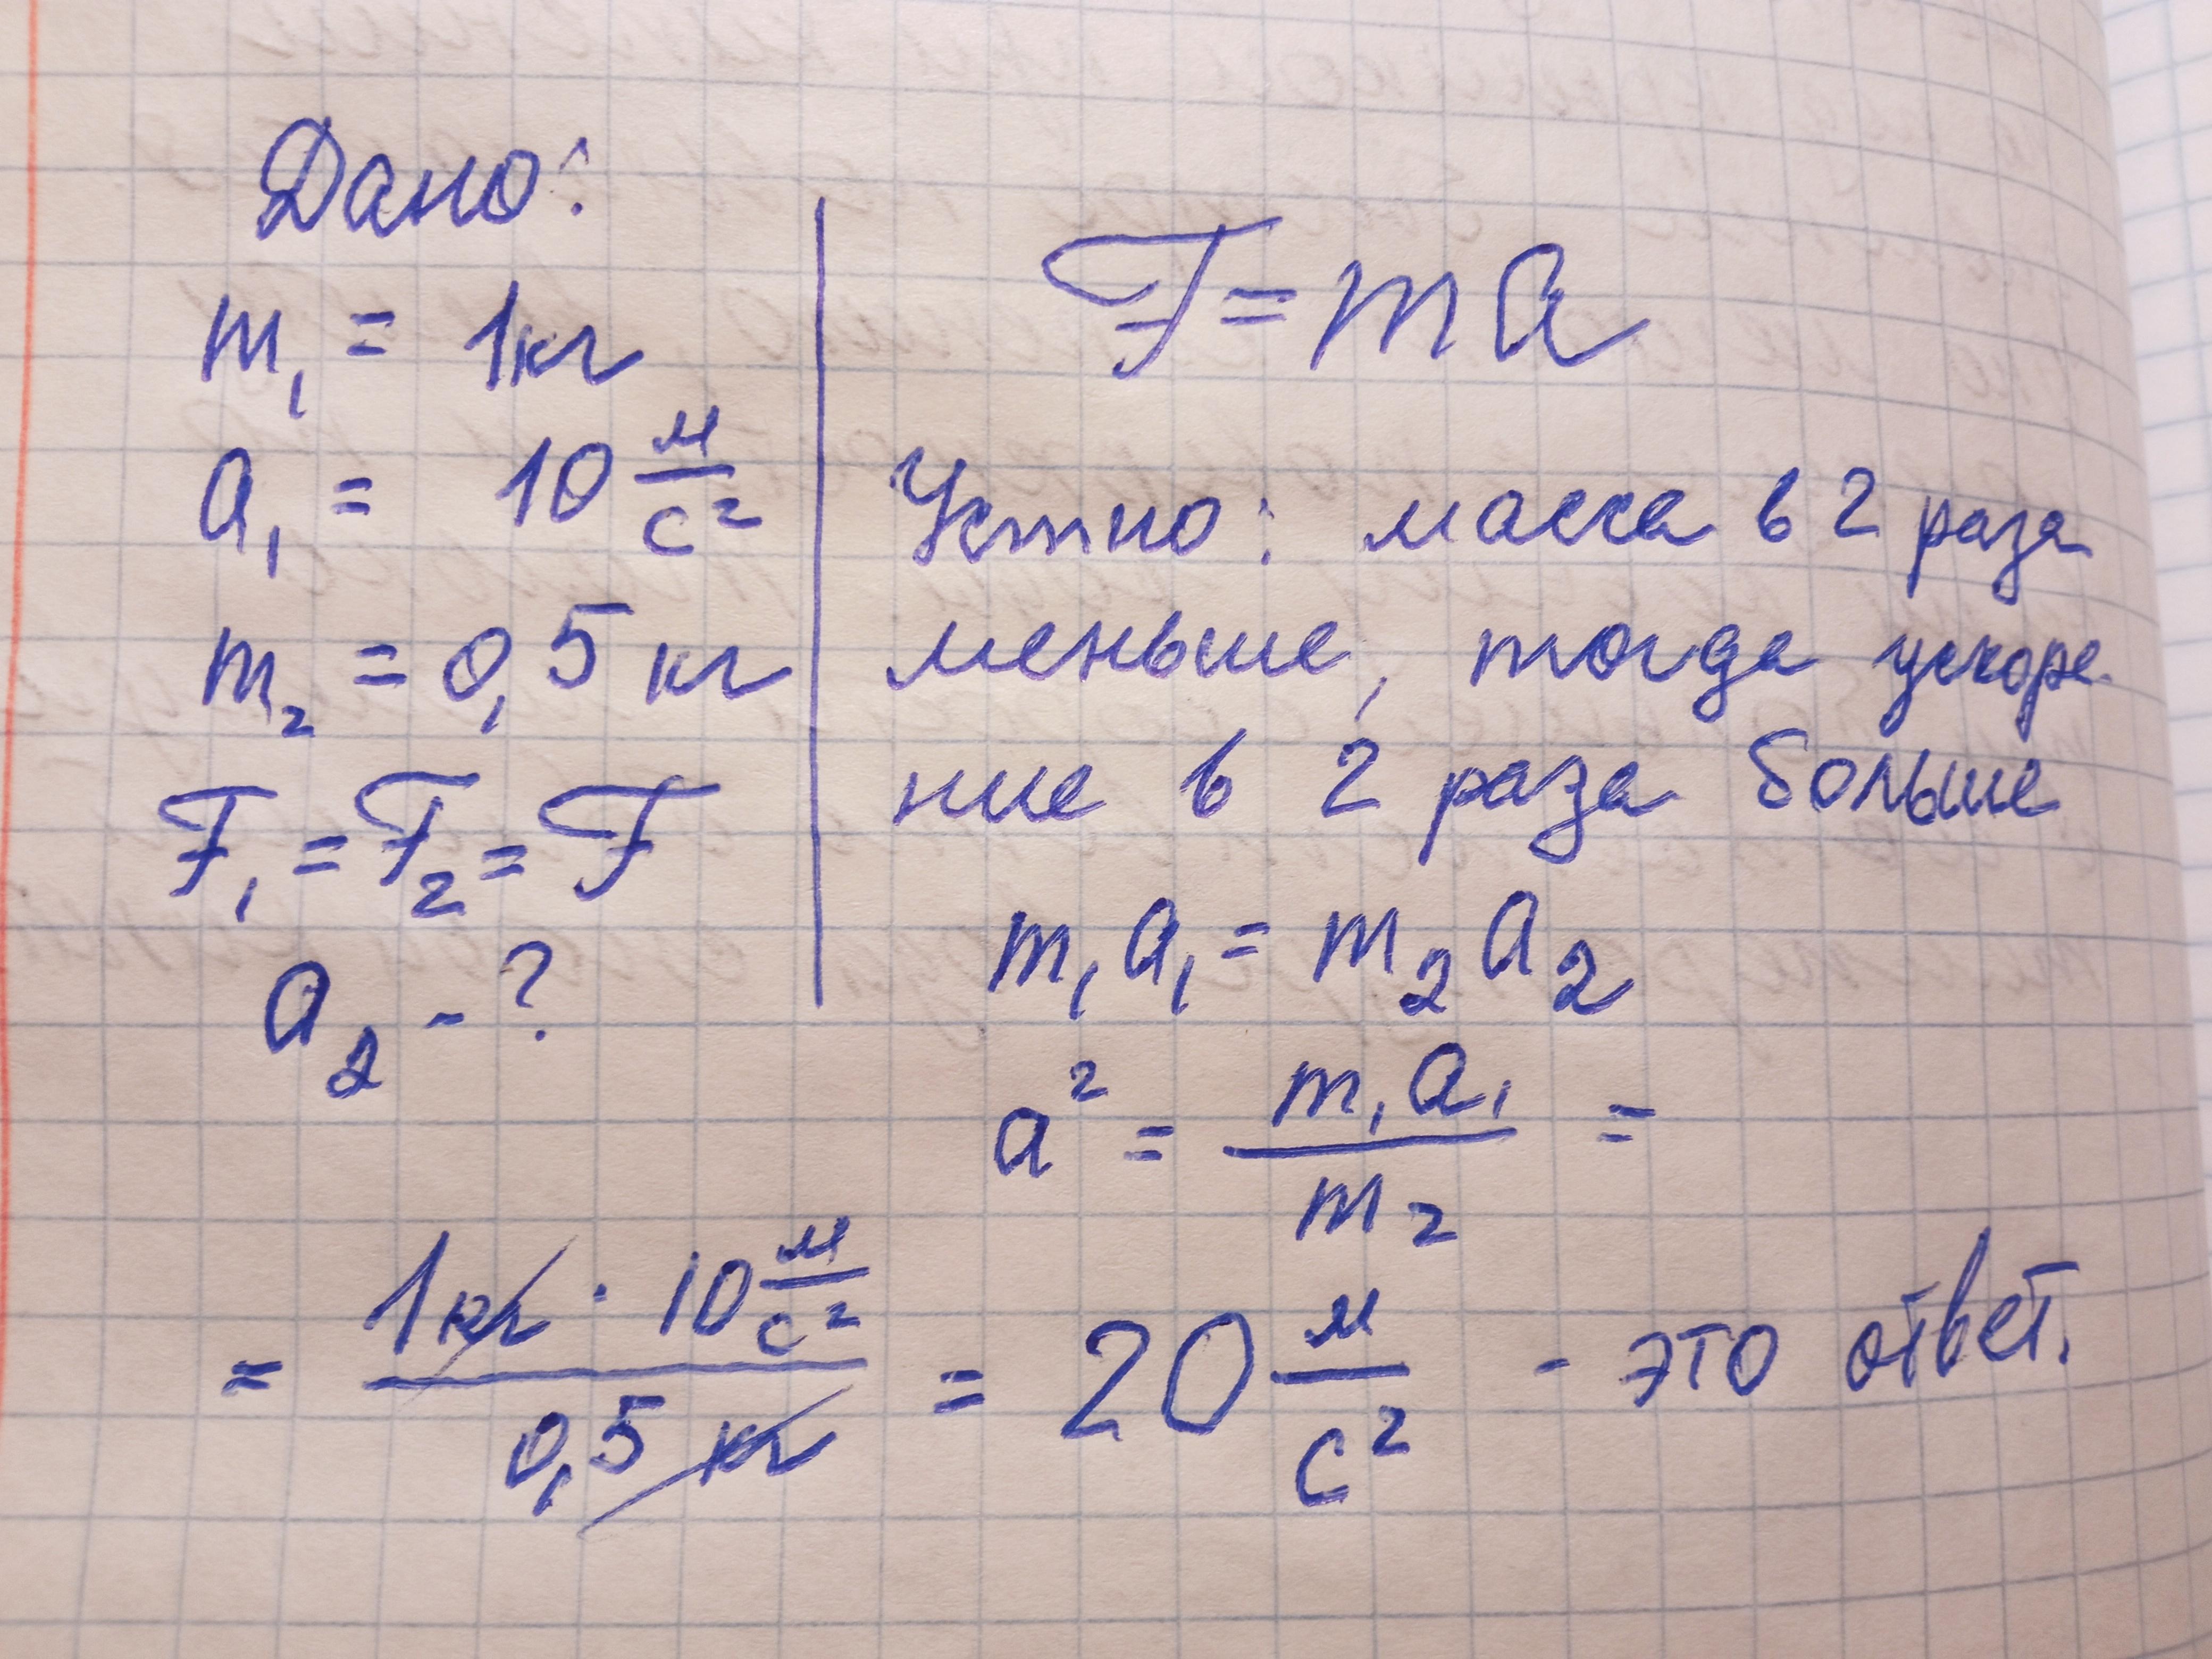 Дано:
m₁ = 1кг
a₁ = 10 м/с²
m₂ = 0,5 кг
F₁ = F₂ = F
a₂ - ?
F = ma
Устно: масса в 2 раза
меньше, тогда ускоре-
ние в 2 раза больше
m₁a₁ = m₂a₂
a² = m₁a₁/m₂ =
= 1кг · 10 м/с² / 0,5 кг = 20 м/с² - это ответ.